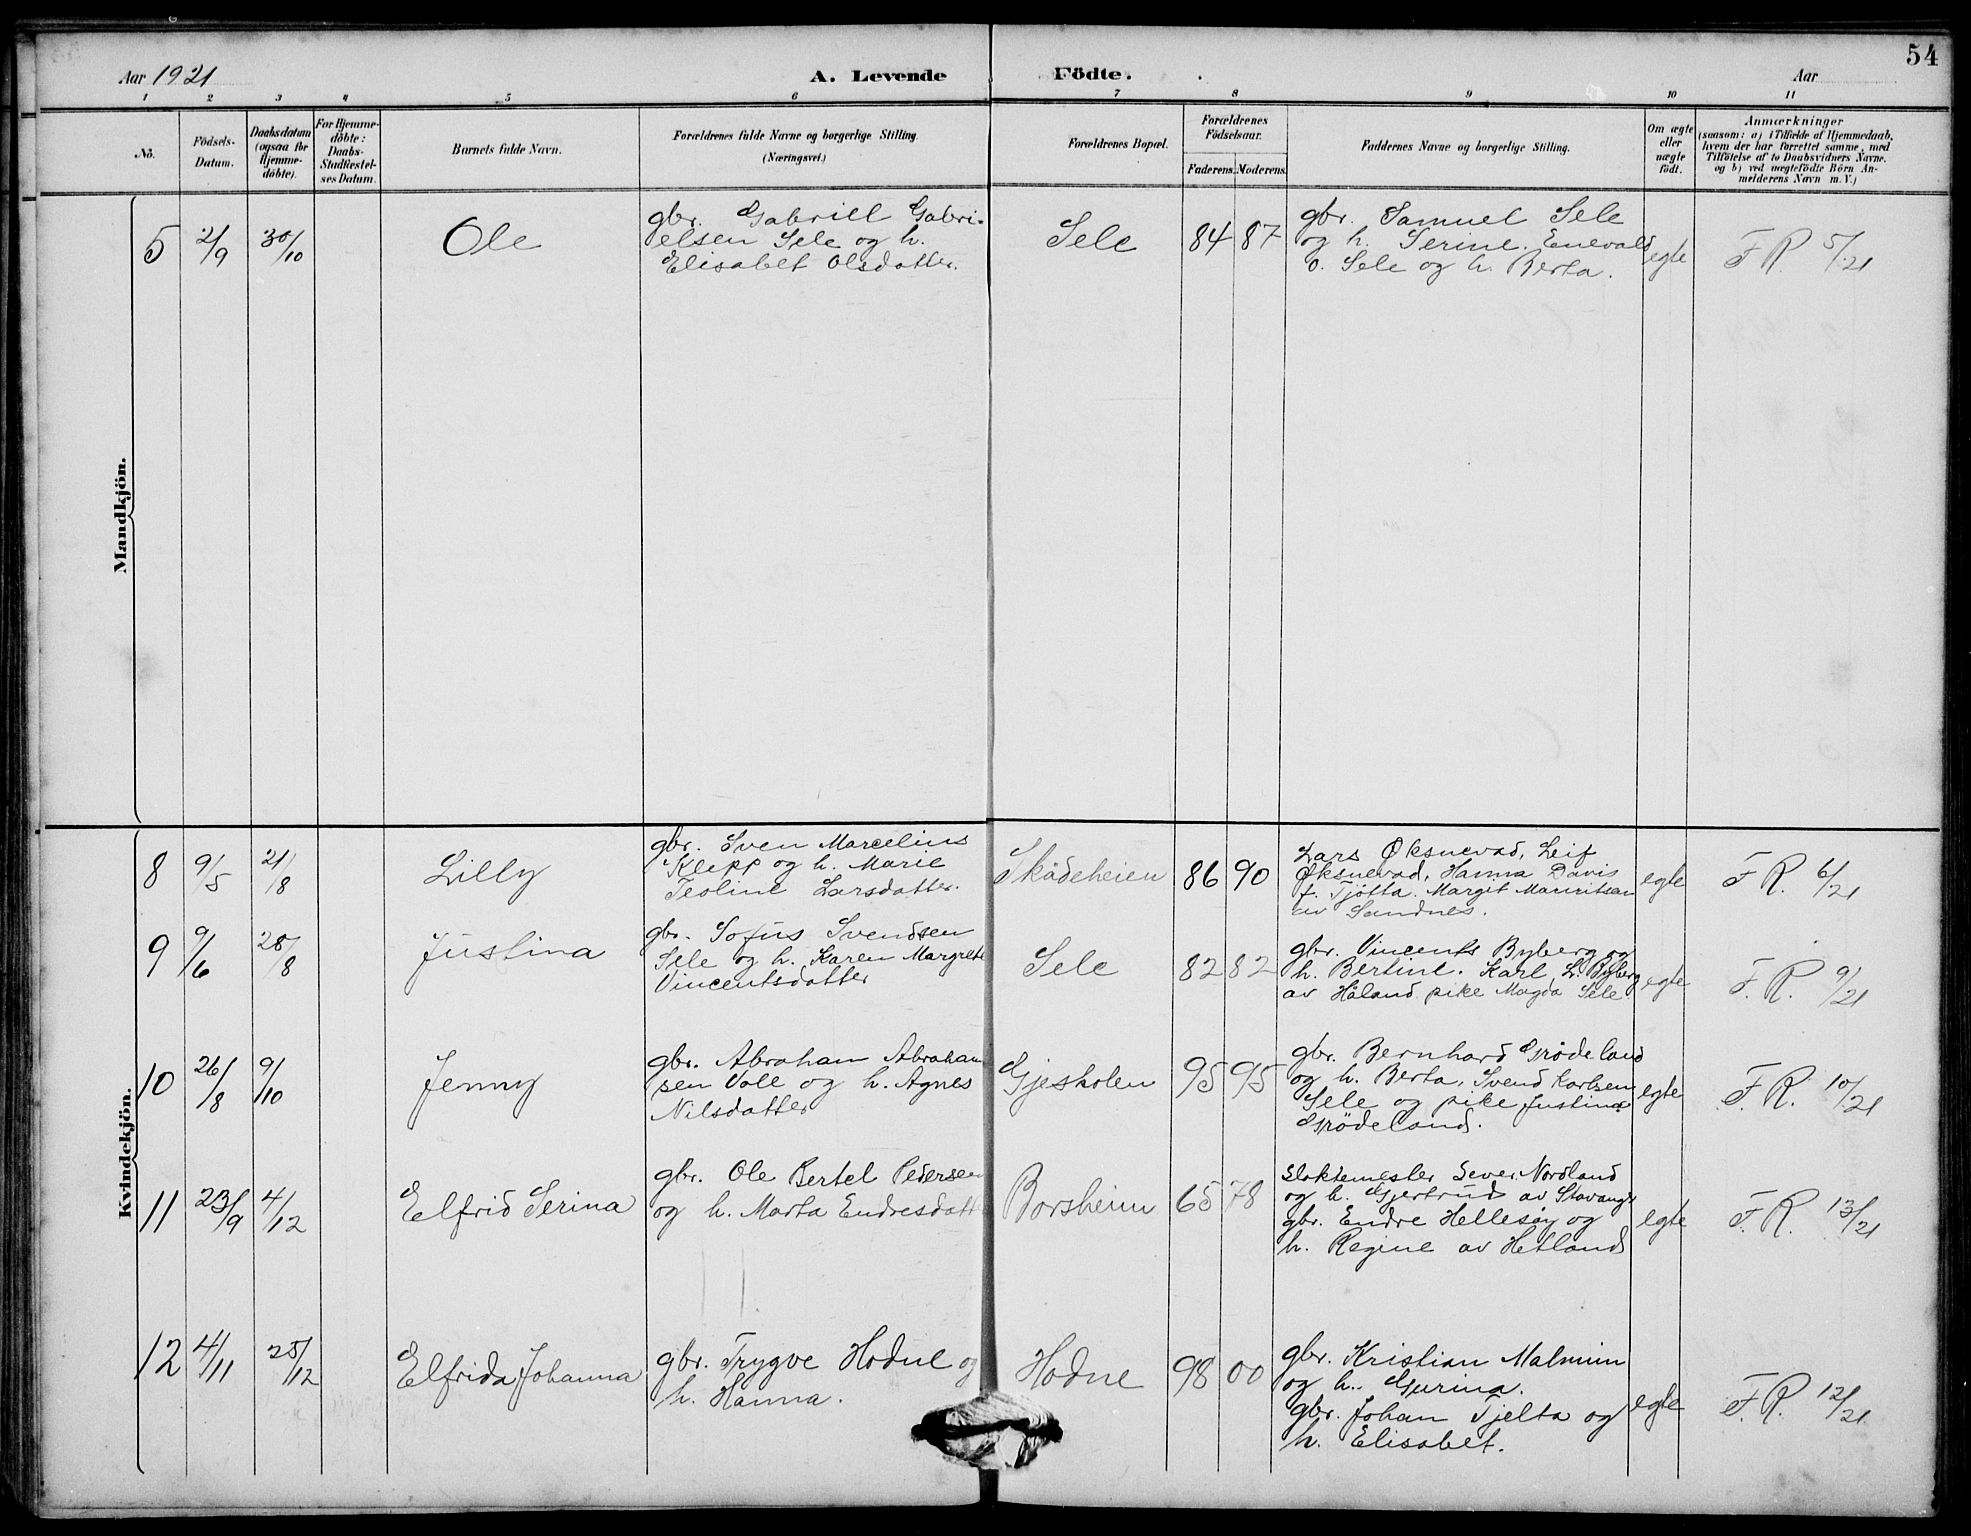 54
Aar 1921 A. Levende Födte. Aar
1 2 3 4 5 6 7 8 9 10 11
No.
Födsels-
Datum.
Daabsdatum
(ogsaa for
Hjemme-
döbte).
For Hjemme-
döbte:
Daabs-
Stadfæstel-
ses Datum.
Barnets fulde Navn.
Forældrenes fulde Navne og borgerlige Stilling.
(Næringsvei.)
Forældrenes Bopæl.
Forældrenes
Födselsaar.
Faderens. Moderens.
Faddernes Navne og borgerlige Stilling.
Om ægte
eller
uægte
födt.
Anmærkninger
(saasom: a) i Tilfælde af Hjemmedaab,
hvem der har forrettet samme, med
Tilföielse af to Daabsvidners Navne.
og b) ved uægtefödte Börn An-
melderens Navn m. V.)
Mandkjön.
5 2/9 30/10 Ole
gbr. Gabriell Gabri-
elsen Sele og h.
Elisabet Olsdatter.
Sele 84 87
gbr. Samuel Sele
og h. Serine. Enevald
O. Sele og h. Berta.
egte F R. 5/21
Kvindekjön.
8 9/5 21/8 Lilly
gbr. Sven Marcelius
Klepp og h. Marie
Teoline Larsdatter.
Skådeheien 86 90
Lars Øksnevad, Leif
Øksnevad, Hanna Davis
f. Tjøtta. Margit Mauritsen
av Sandnes.
egte F R. 6/21
9 9/6 28/8 Justina
gbr. Sofus Svendsen
Sele og h. Karen Margrete
Vincentsdatter
Sele 82 82
gbr. Vincents Byberg og
h. Bertine. Karl L. Byberg
av Håland pike Magda Sele
egte F. R. 9/21
10 26/8 9/10 Jenny
gbr. Abraham Abraham
sen Vole og h. Agnes
Nilsdatter
Gjesholen 95 95
gbr. Bernhard Grödeland
og h. Berta, Svend Karlsen
Sele og pike Justina
Grödeland.
egte F. R. 10/21
11 23/9 4/12 Elfrid Serina
gbr. Ole Bertel Pedersen
og h. Marta Endresdatt
Borsheim 65 78
Sloktemester Sever Nordland
og h. Gjertrud av Stavanger
gbr. Endre Hellesøy og
h. Regine av Hetland
egte F. R. 13/21
12 4/11 25/12 Elfrida Johanna
gbr. Trygve Hodne og
h. Hanna.
Hodne 98 00
gbr. Kristian Malmim
og h. Gurina.
gbr. Johan Tjelta og
h. Elisabet.
egte F. R. 12/21